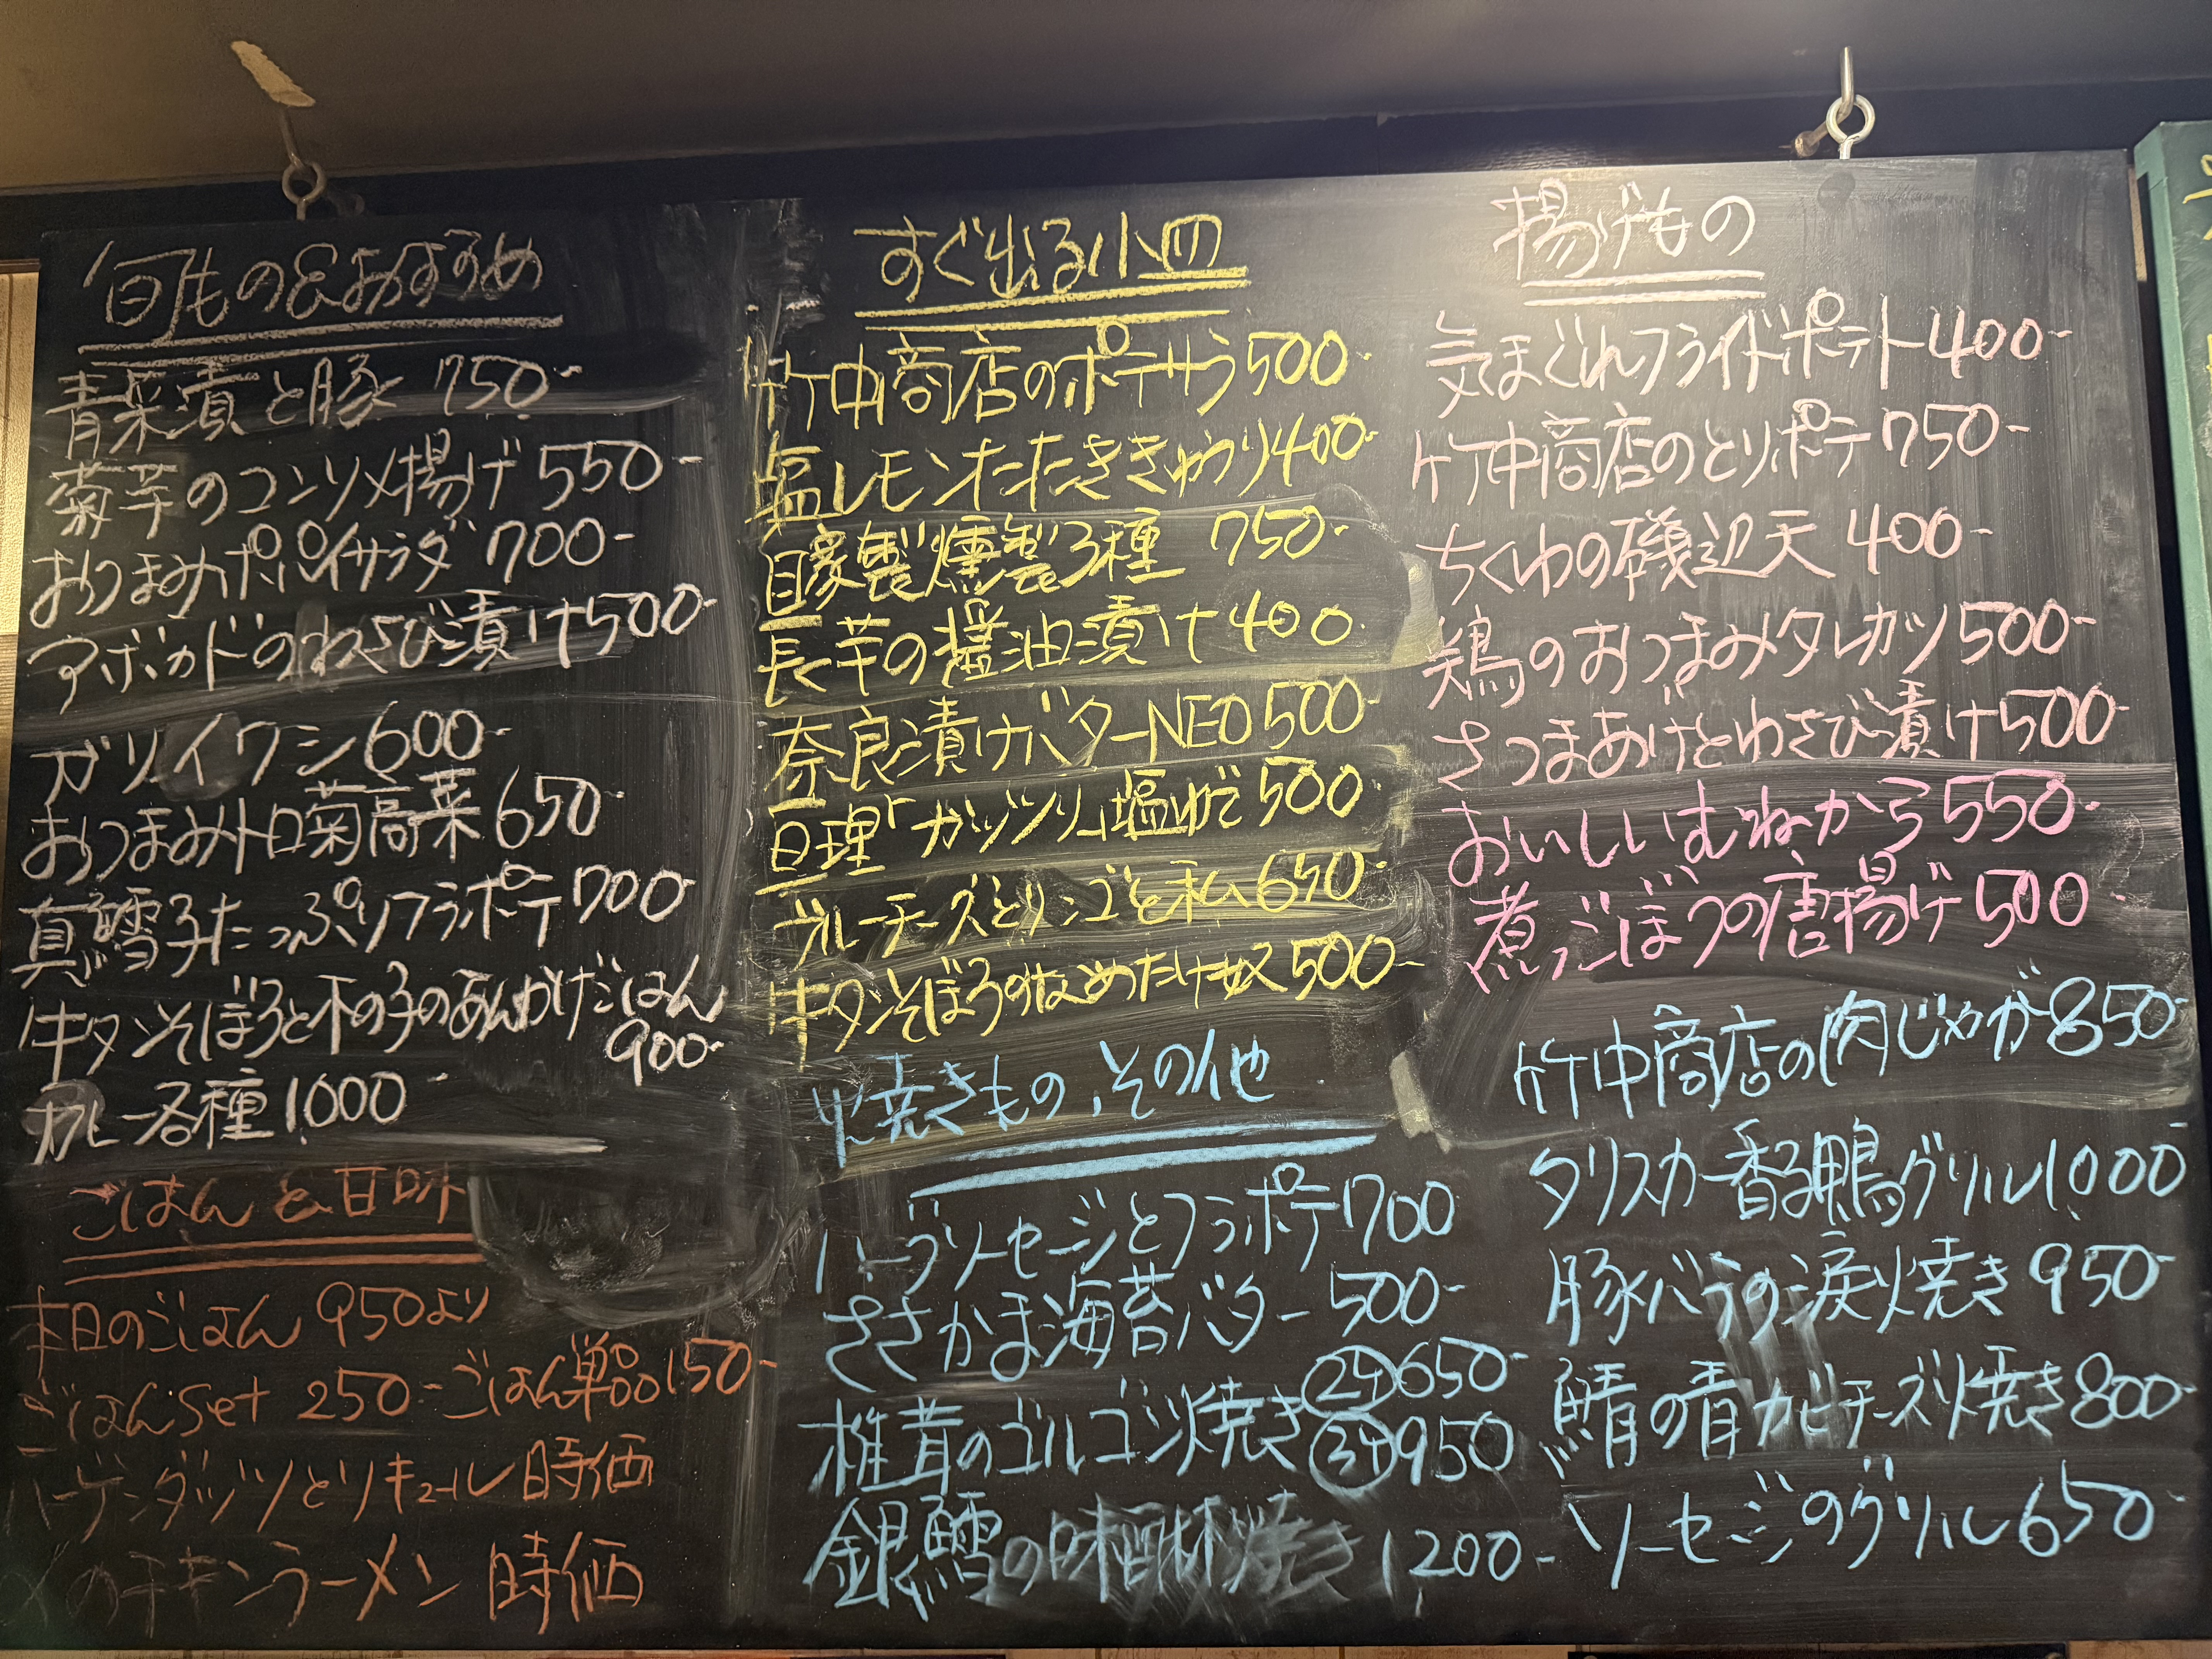 旬もの&おすすめ
青菜漬と豚 750-
菊芋のコンソメ揚げ 550-
おつまみポパイサラダ 700-
アボカドのわさび漬け 500-
ガリイワシ 600-
おつまみトロ菊高菜 650-
真鱈子たっぷりフラポテ 700-
牛タンそぼろと木の子のあんかけごはん
900-
カレー各種 1000-
ごはんと甘味
本日のごはん 950より
ごはんset 250- ごはん単品 150-
ハーゲンダッツとリキュール 時価
〆のチキンラーメン 時価
すぐ出る小皿
竹中商店のポテサラ 500-
塩レモンたたききゅうり 400-
自家製燻製3種 750-
長芋の醤油漬け 400-
奈良漬けバターNEO 500-
亘理「ガッツリ」塩ゆで 500-
ブルーチーズとリンゴと私 650-
牛タンそぼろのなめたけ奴 500-
焼きもの、その他
ハーブソーセージとフラポテ 700
ささかま海苔バター 500-
椎茸のゴルゴンゾ焼き ②ケ 650-
③ケ 950
銀鱈の味醂焼き 1200-
揚げもの
気まぐれフライドポテト 400-
竹中商店のとりポテ 750-
ちくわの磯辺天 400-
鶏のおつまみタレカツ 500-
さつまあげとわさび漬け 500-
おいしいむねから 550-
煮ごぼうの唐揚げ 500-
竹中商店の肉じゃが 850-
タリスカー香る鴨グリル 1000-
豚バラの涙焼き 950-
鯖の青カビチーズ焼き 800-
ソーセージのグリル 650-